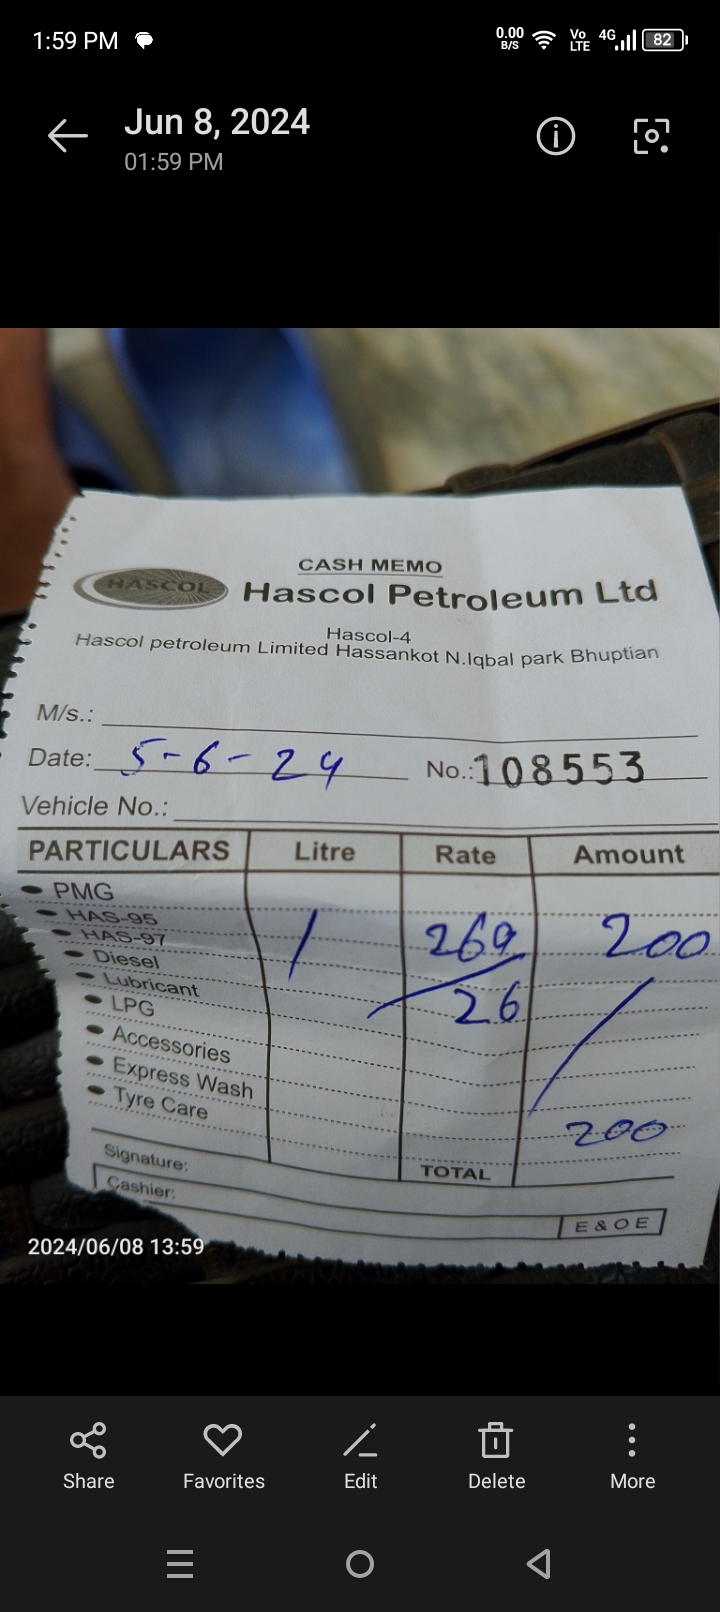 1:59 PM 0.00 B/S Vo LTE 4G 82
Jun 8, 2024
01:59 PM
CASH MEMO
HASCOL Hascol Petroleum Ltd
Hascol-4
Hascol petroleum Limited Hassankot N.Iqbal park Bhuptian
M/s.:
Date: 5-6-24 No.: 108553
Vehicle No.:
PARTICULARS Litre Rate Amount
PMG
HAS-95 / 269 200
HAS-97
Diesel
Lubricant 26
LPG
Accessories
Express Wash
Tyre Care 200
Signature: TOTAL
Cashier:
E & O E
2024/06/08 13:59
Share Favorites Edit Delete More